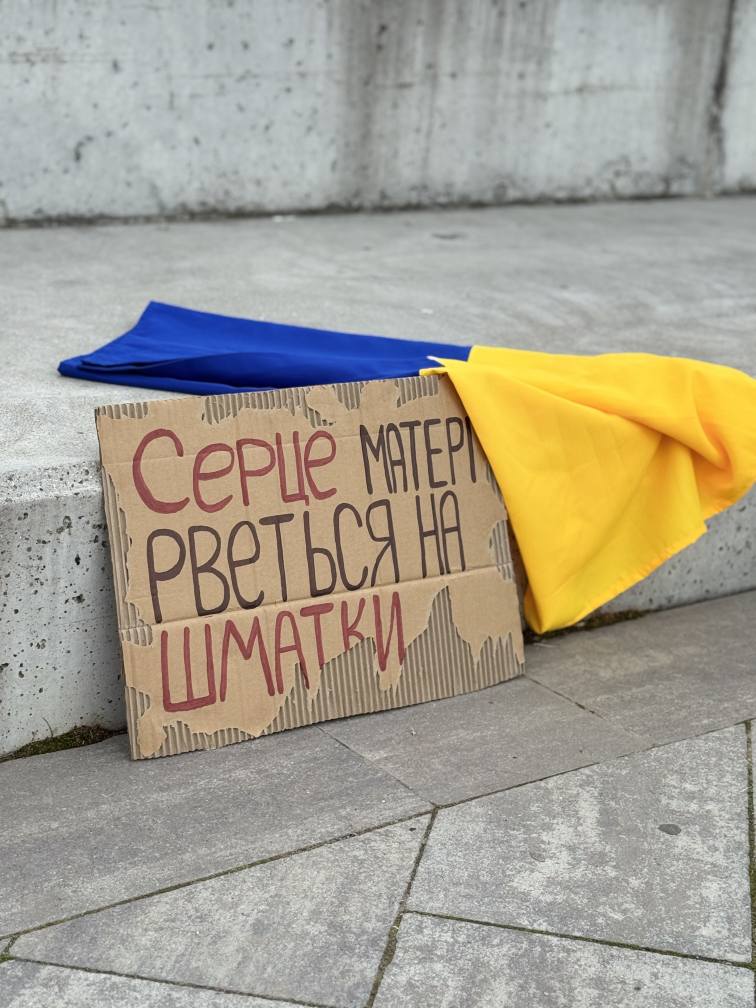 Серце МАТЕРІ
РВеТЬСЯ НА
ШМАТКИ